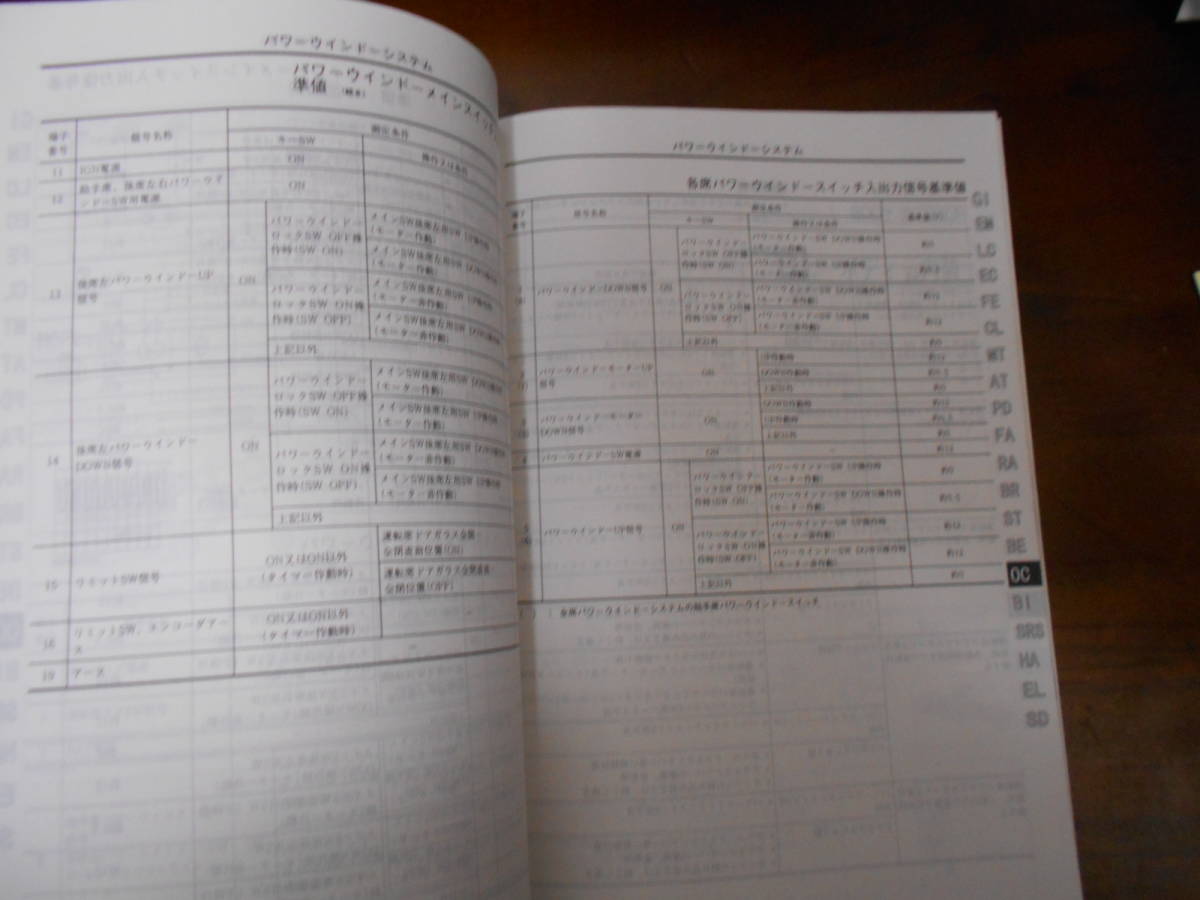 パワーウインドーシステム
パワーウインドーメインスイッチ
準値
端子番号
信号名称
測定条件
キーSW
操作又は条件
11
IGN電源
ON
12
助手席、後席左右パワーウインドーSW用電源
ON
13
後席左パワーウインドーUP信号
ON
パワーウインドーロックSW OFF操作時(SW ON)
メインSW後席左用SW UP操作時(モーター作動)
メインSW後席左用SW DOWN操作時(モーター作動)
パワーウインドーロックSW ON操作時(SW OFF)
メインSW後席左用SW UP操作時(モーター非作動)
メインSW後席左用SW DOWN操作時(モーター非作動)
上記以外
14
後席左パワーウインドーDOWN信号
ON
パワーウインドーロックSW OFF操作時(SW ON)
メインSW後席左用SW DOWN操作時(モーター作動)
メインSW後席左用SW UP操作時(モーター作動)
パワーウインドーロックSW ON操作時(SW OFF)
メインSW後席左用SW DOWN操作時(モーター非作動)
メインSW後席左用SW UP操作時(モーター非作動)
上記以外
15
リミットSW信号
ON又はON以外(タイマー作動時)
運転席ドアガラス全開~全閉直前位置(ON)
運転席ドアガラス全閉直前~全閉位置(OFF)
リミットSW、エンコーダアース
ON又はON以外(タイマー作動時)
19
アース
パワーウインドーシステム
各席パワーウインドースイッチ入出力信号基準値
端子番号
信号名称
測定条件
キーSW
操作又は条件
パワーウインドーDOWN信号
ON
パワーウインドーロックSW OFF操作時(SW ON)
パワーウインドーSW DOWN操作時(モーター作動)
パワーウインドーSW UP操作時(モーター作動)
パワーウインドーロックSW ON操作時(SW OFF)
パワーウインドーSW DOWN操作時(モーター非作動)
パワーウインドーSW UP操作時(モーター非作動)
上記以外
パワーウインドーモーターUP信号
ON
UP作動時
DOWN作動時
上記以外
パワーウインドーモーターDOWN信号
ON
DOWN作動時
UP作動時
上記以外
4
パワーウインドーSW電源
ON
パワーウインドーUP信号
ON
パワーウインドーロックSW OFF操作時(SW ON)
パワーウインドーSW UP操作時(モーター作動)
パワーウインドーSW DOWN操作時(モーター作動)
パワーウインドーロックSW ON操作時(SW OFF)
パワーウインドーSW UP操作時(モーター非作動)
パワーウインドーSW DOWN操作時(モーター非作動)
上記以外
( ):全席パワーウインドーシステムの助手席パワーウインドースイッチ
GI
EM
LC
EC
FE
CL
MT
AT
PD
FA
RA
BR
ST
BE
OC
BI
SRS
HA
EL
SD